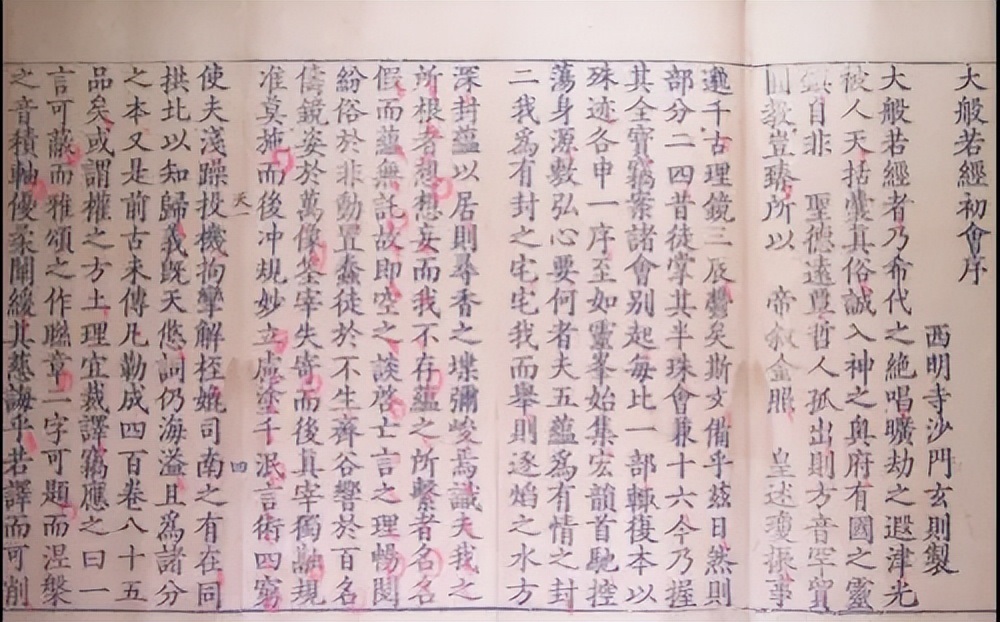 大般若經初會序
西明寺沙門玄則製
大般若經者乃希代之絶唱曠劫之遐津光
被人天括囊真俗誠入神之奥府有國之靈
鎮自非聖德遠覃哲人孤出則方音罕貿
圓教豈臻所以帝敘金照皇述瓊振事
邈千古理鏡三辰鬱矣斯文備乎兹日然則
部分二四昔徒掌其半珠會兼十六今乃握
其全寶竊案諸會别起每比一部輒復本以
殊迹各申一序至如靈峯始集宏韻首馳控
蕩身源敷弘心要何者夫五蘊爲有情之封
二我爲有封之宅宅我而舉則逐焰之水方
深封蘊以居則尋香之堞彌峻焉識夫我之
所根者想想妄而我不存蘊之所繫者名名
假而蘊無託故即空之談啓亡言之理暢閱
紛俗於非動置蠢徒於不生齊谷響於百名
儔鏡姿於萬像筌宰失寄而後真宰獨融規
准莫施而後冲規妙立處塗千泯言術四窮
天一
四
使夫淺躁投機拘攣解桎媲司南之有在同
拱北以知歸義既天悠詞仍海溢且爲諸分
之本又是前古未傳凡勒成四百卷八十五
品矣或謂權之方土理宜裁譯竊應之曰一
言可蔽而雅頌之作聯章二字可題而涅槃
之音積軸優柔闡緩其慈誨乎若譯而可削